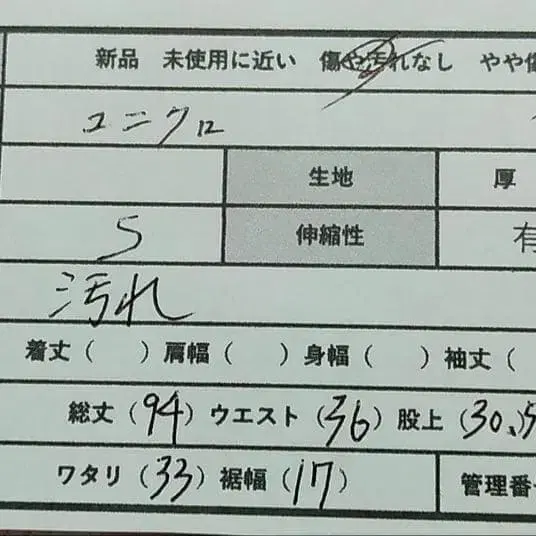 新品 未使用に近い 傷や汚れなし やや傷
ユニクロ
生地 厚
S 伸縮性 有
汚れ
着丈( )肩幅( )身幅( )袖丈(
総丈(94)ウエスト(36)股上(30.5
ワタリ(33)裾幅(17) 管理番